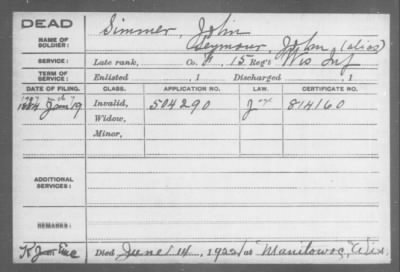 DEAD
NAME OF SOLDIER: Simmer, John
Seymour, John (alias)
SERVICE: Late rank, Co. F, 15 Reg't Wis Inf
TERM OF SERVICE: Enlisted , 1 Discharged , 1
DATE OF FILING. CLASS. APPLICATION NO. LAW. CERTIFICATE NO.
1884 Jan 19 Invalid, 504290 814160
Widow,
Minor,
ADDITIONAL SERVICES:
REMARKS:
Died June 14, 1922 at Manitowoc, Wis.